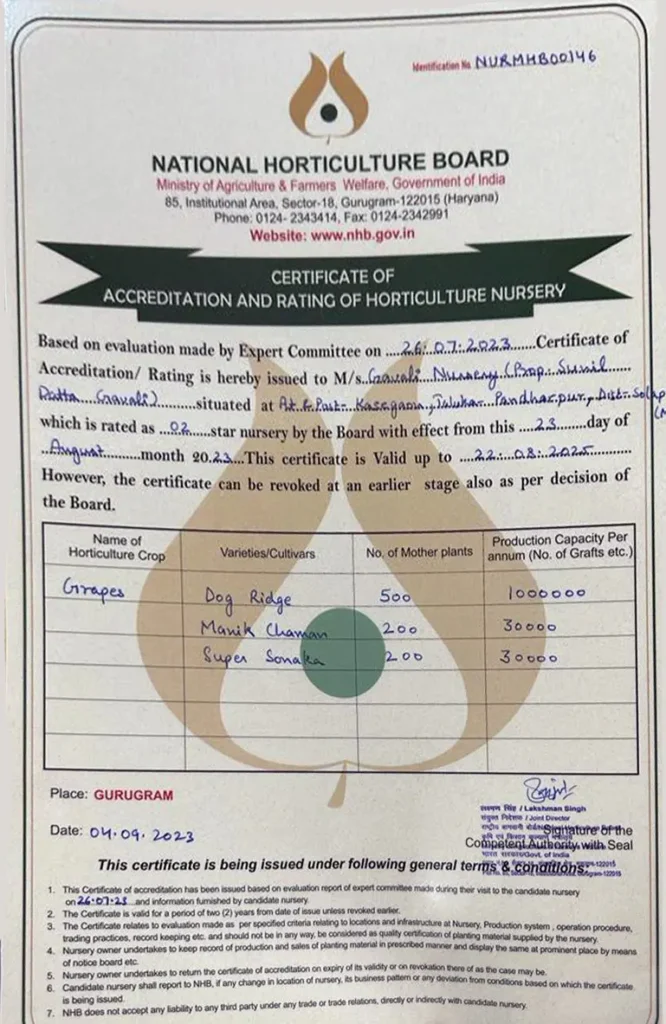 Identification No. NURMHB00146
NATIONAL HORTICULTURE BOARD
Ministry of Agriculture & Farmers Welfare, Government of India
85, Institutional Area, Sector-18, Gurugram-122015 (Haryana)
Phone: 0124- 2343414, Fax: 0124-2342991
Website: www.nhb.gov.in
CERTIFICATE OF
ACCREDITATION AND RATING OF HORTICULTURE NURSERY
Based on evaluation made by Expert Committee on ....26.07.2023......Certificate of
Accreditation/ Rating is hereby issued to M/s..Gavali...Nursery.(Prop. Sunil......
Datta....Gavali).........situated at At & Post:. Kasegaon, Taluka:. Pandharpur, Dist:. Solap
which is rated as ..02.....star nursery by the Board with effect from this ....23......day of
..August.........month 20.23...This certificate is Valid up to ....22.08.2025...........
However, the certificate can be revoked at an earlier stage also as per decision of
the Board.
Name of Horticulture Crop Varieties/Cultivars No. of Mother plants Production Capacity Per annum (No. of Grafts etc.)
Grapes Dog Ridge 500 1000000
Manik Chaman 200 30000
Super Sonaka 200 30000
Place: GURUGRAM
लक्ष्मण सिंह / Lakshman Singh
संयुक्त निदेशक / Joint Director
Date: 04.09.2023
Signature of the
Competent Authority with Seal
भारत सरकार/Govt. of India
This certificate is being issued under following general terms & conditions:
1. This Certificate of accreditation has been issued based on evaluation report of expert committee made during their visit to the candidate nursery
on 26.07.23 and information furnished by candidate nursery.
2. The Certificate is valid for a period of two (2) years from date of issue unless revoked earlier.
3. The Certificate relates to evaluation made as per specified criteria relating to locations and infrastructure at Nursery, Production system , operation procedure,
trading practices, record keeping etc. and should not be in any way, be considered as quality certification of planting material supplied by the nursery.
4. Nursery owner undertakes to keep record of production and sales of planting material in prescribed manner and display the same at prominent place by means
of notice board etc.
5. Nursery owner undertakes to return the certificate of accreditation on expiry of its validity or on revocation there of as the case may be.
6. Candidate nursery shall report to NHB, if any change in location of nursery, its business pattern or any deviation from conditions based on which the certificate
is being issued.
7. NHB does not accept any liability to any third party under any trade or trade relations, directly or indirectly with candidate nursery.